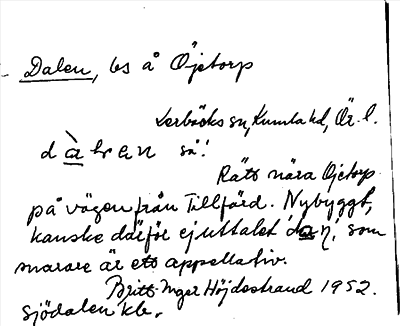 Dalen, bs å Öjetorp
Lerbäcks sn, Kumla hd, Ör. l.
så!
Rätt nära Öjetorp
på vägen från Tillfärd. Nybyggt,
kanske därför ej uttalet som
snarare är ett appellativ.
Britt-Inger Höjdestrand 1952.
Sjödalen